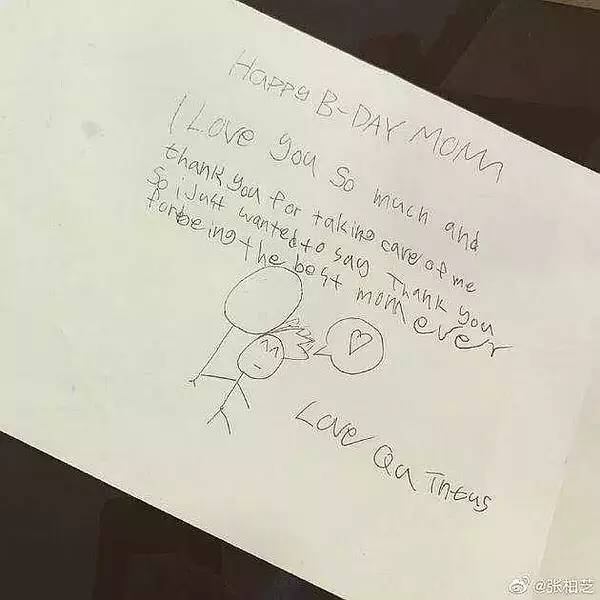 HAPPY B-DAY MOM
I LOVE you so much and
thank you for taking care of me
So i Just wanted to say Thank you
for being the best mom ever
Love Qu Intus
@张柏芝